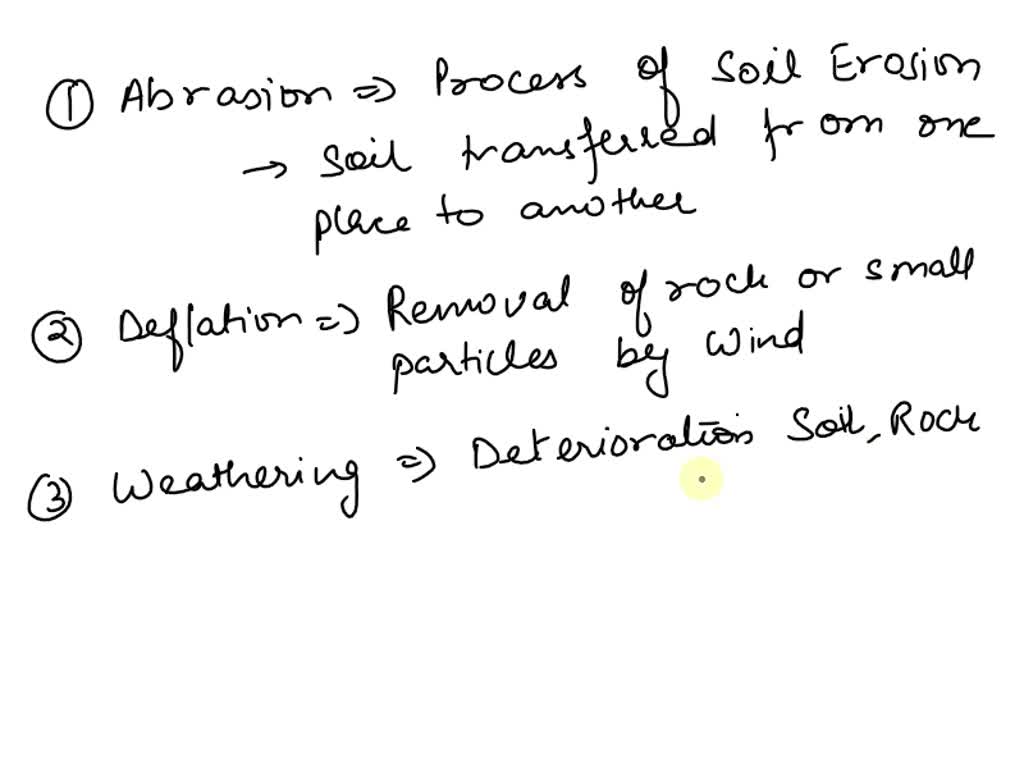 ① Abrasion ⇒ Process of Soil Erosion
→ Soil transferred from one
place to another
② Deflation ⇒ Removal of rock or small
particles by wind
③ Weathering ⇒ Deterioration Soil, Rock